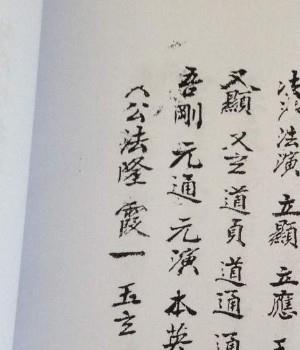 法演 立顯 立應
又顯 又立 道貞 道通 通
吾剛 元通 元演 本英
公法隆 霞一 五立